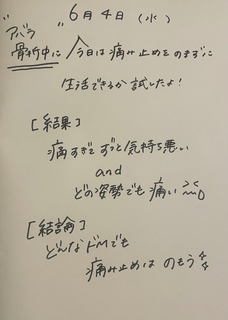 6月4日(水)
"アバラ"
骨折中に 今日は痛み止めをのまずに
生活できるか試したよ!
[結果]
痛すぎてずっと気持ち悪い
and
どの姿勢でも痛い
[結論]
どんなドMでも
痛み止めは のもう